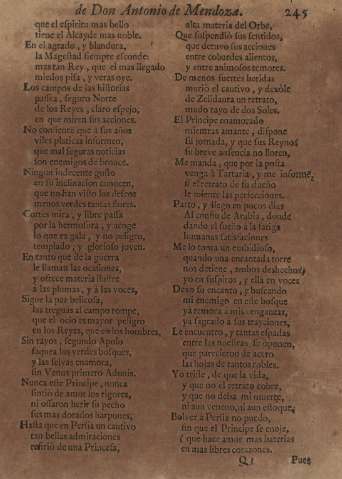 de Don Antonio de Mendoza. 245
que el espiritu mas bello
tiene el Alcayde mas noble.
En el agrado, y blandura,
la Magestad siempre esconde:
mas tan Rey, que el mas llegado
miedos pisa, y veras oye.
Los campos de las historias
passea, seguro Norte
de los Reyes, claro espejo,
en que miren sus acciones.
No consiente que à sus años
viles platicas informen,
que mal seguras noticias
son enemigos de bronce.
Ningun indecente gusto
en su inclinacion conocen,
que no han visto los
menos verdes tantas flores.
Cortes mira, y libre passa
por la hermosura, y acoge
lo que es gala, y no peligro,
templado, y glorioso joven.
En tanto que de la guerra
le llaman las ocasiones,
y ofrece materia ilustre
a las plumas, y à las voces,
Sigue la paz belicosa,
las treguas al campo rompe,
que el ocio es mayor peligro
en los Reyes, que en los hombres.
Sin rayos, segundo Apolo
saquea los verdes bosques,
y las selvas enamora,
sin Venus primero Adonis.
Nunca este Principe, nunca
sintio de amor los rigores,
ni ossaron herir su pecho
sus mas dorados harpones;
Hasta que en Persia un cautivo
con bellas admiraciones
refirió de una Princesa,
alta materia del Orbe,
Que suspendiò sus sentidos,
que detuvo sus acciones
entre cobardes alientos,
y entre animosos temores.
De menos fuertes heridas
muriò el cautivo, y dexòle
de Zelidaura un retrato,
mudo rayo de dos Soles.
El Principe enamorado
mientras amante, dispone
su jornada, y que sus Reynos
su breve ausencia no lloren,
Me manda, que por la posta
venga à Tartaria, y me informe,
si el retrato de su dueño
le miente las perfecciones.
Parto, y llego en pocos dias
Al confin de Arabia, donde
dando el sueño à la fatiga
humanas satisfacciones
Me lo tanta un embidioso,
quando una encantada torre
nos detiene, ambos deshechos,
yo en suspiros, y ella en voces
Dexo su encanto, y buscando
mi enemigo en este bosque
ya remora à mis venganças,
ya sagrado à sus trayciones.
Le encuentro, y tantas espadas
entre las nuestras se oponen,
que parecieron de acero
las hojas de tantos robles.
Yo triste, de que la vida,
y que no el retrato cobre,
y que no deba mi muerte,
ni aun veneno, ni aun estoque,
Bolver à Persia no puedo,
sin que el Principe se enoje,
( que hace amor mas baterias
en mas libres corazones.
Q 3 Pues